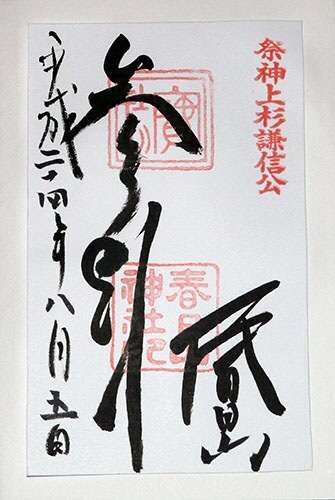 祭神上杉謙信公
春日山
参拝
平成二十四年八月五日
春日山
神社印